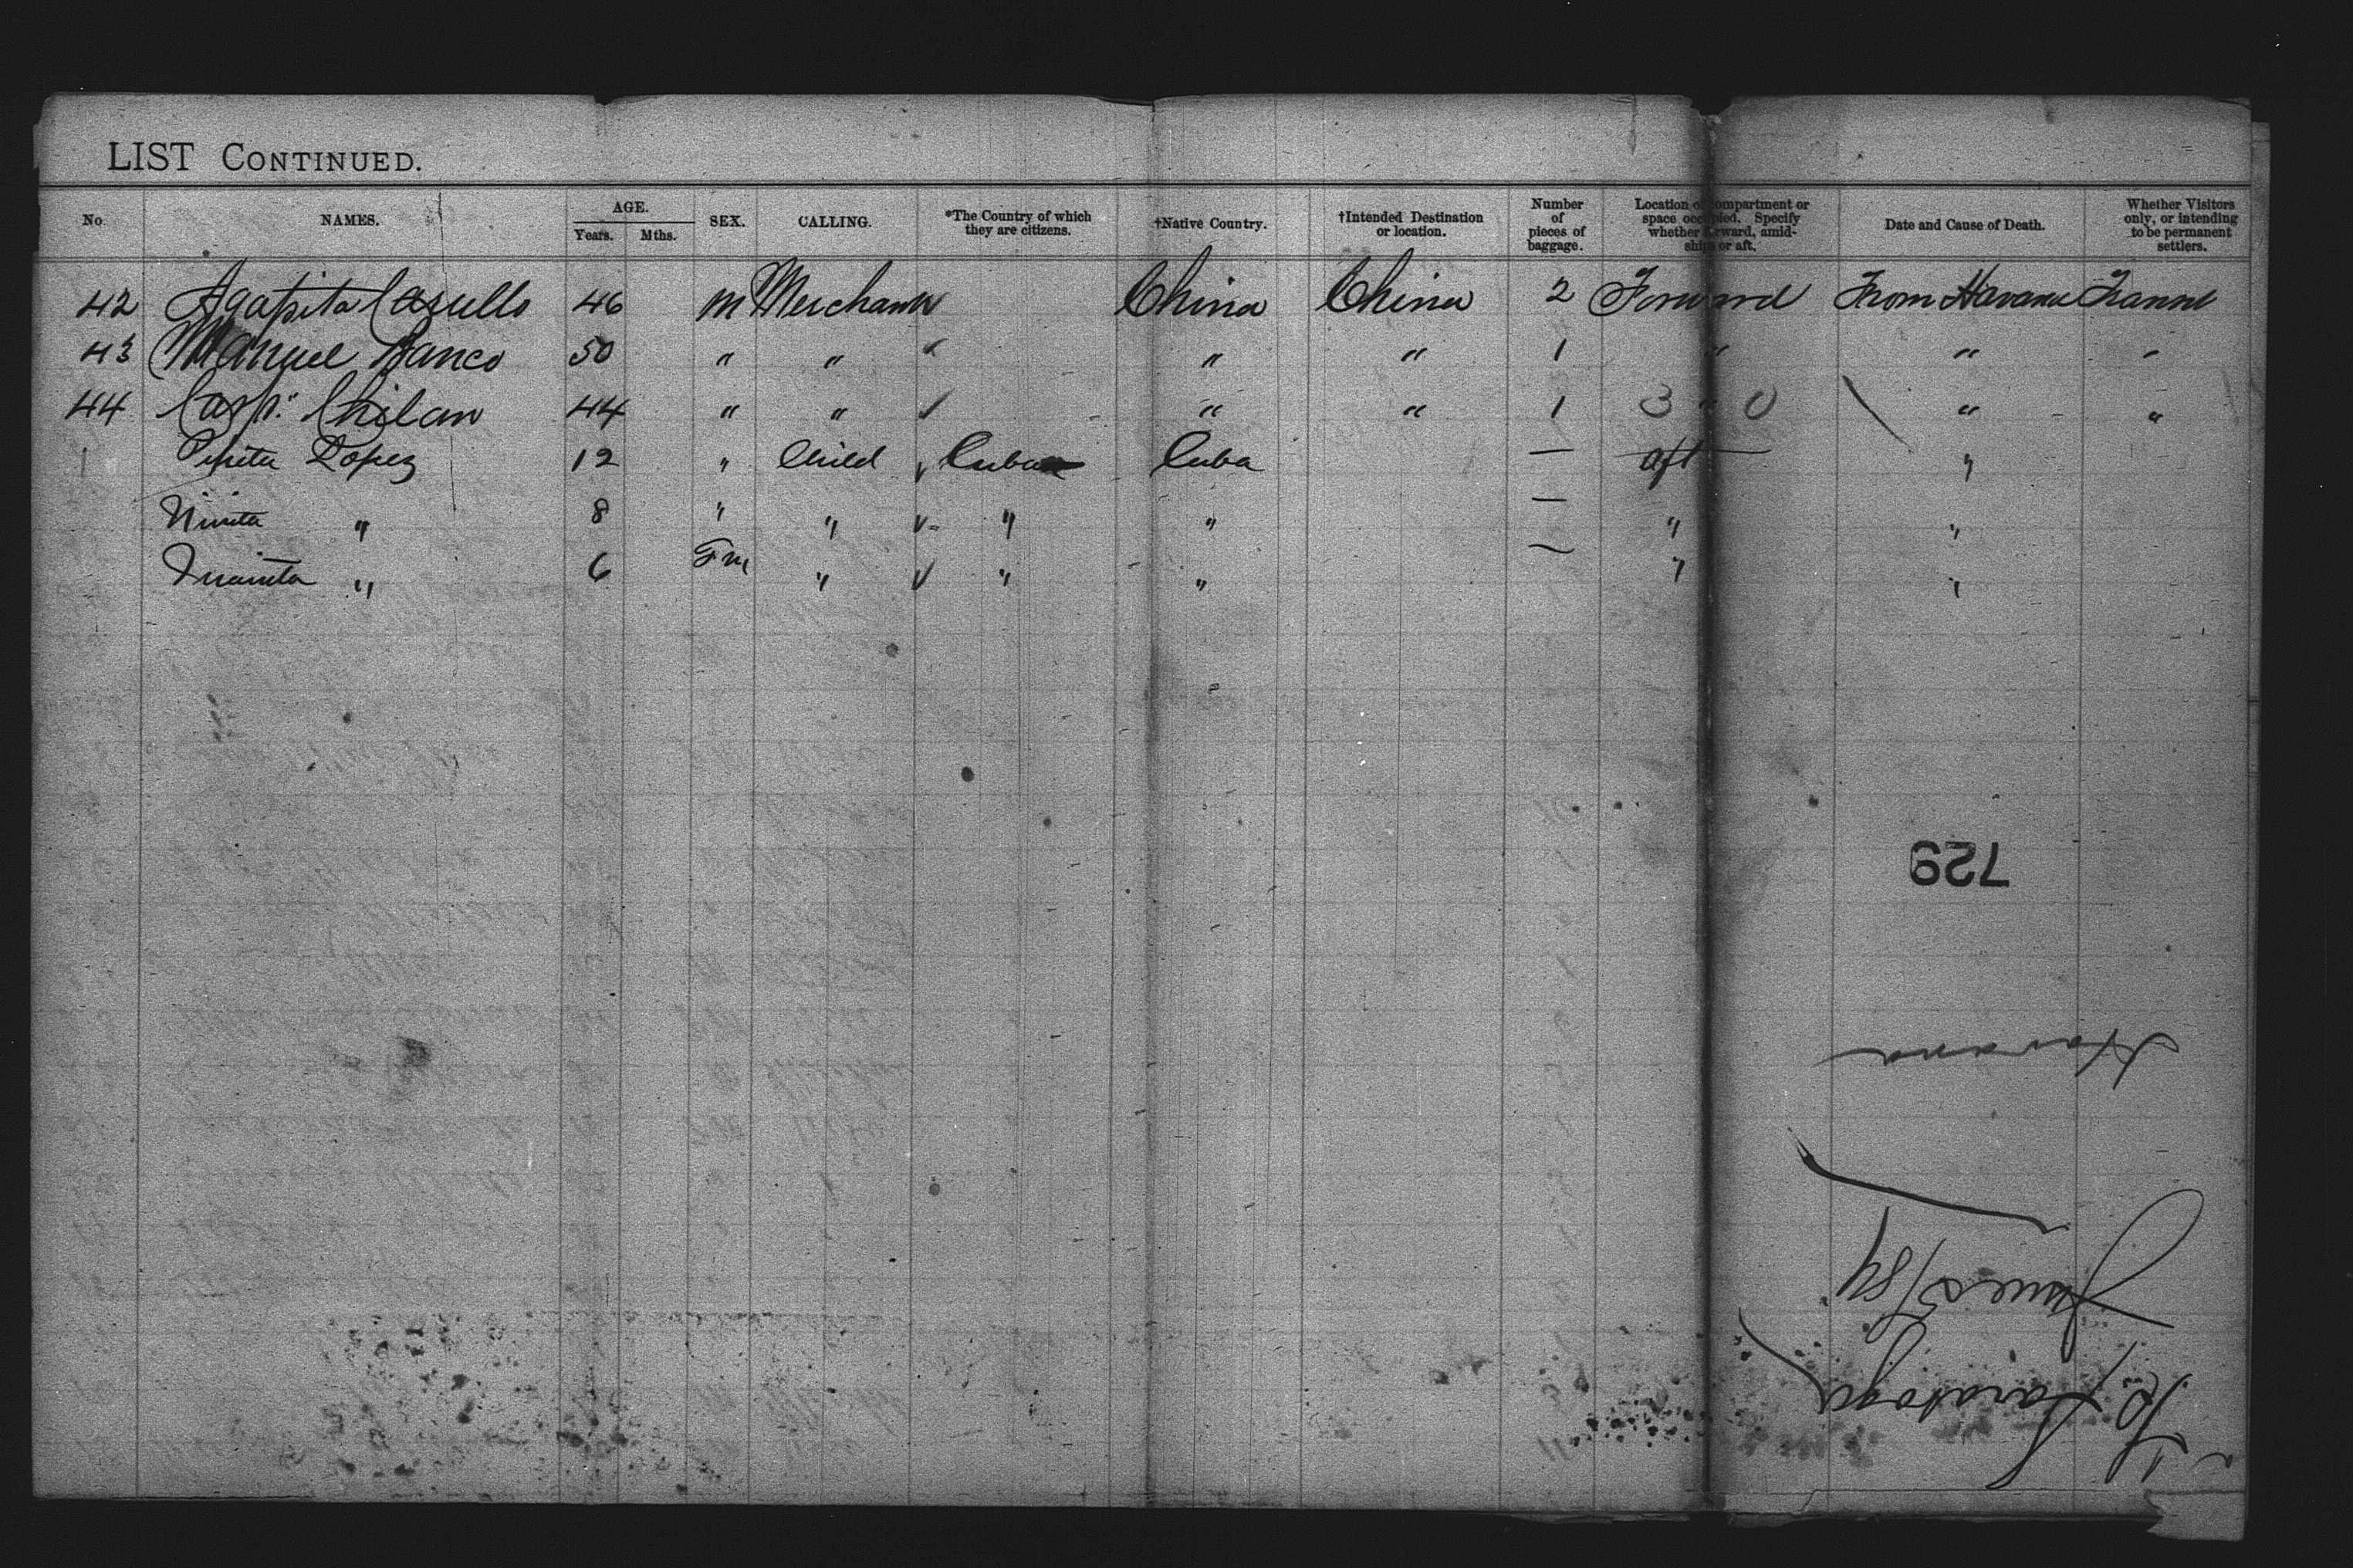 LIST CONTINUED.
No. NAMES. AGE. Years. Mths. SEX. CALLING. *The Country of which they are citizens. †Native Country. †Intended Destination or location. Number of pieces of baggage. Location of compartment or space occupied. Specify whether forward, amidships or aft. Date and Cause of Death. Whether Visitors only, or intending to be permanent settlers.
42 Agapito 46 m Merchant China China 2 Forward From Havana Transit
43 Manuel 50 " " ✓ " " 1 " " "
44 44 " " ✓ " " 1 3 " 0 " "
Lopez 12 " Child ✓ Cuba Cuba — aft "
" 8 " " ✓ " " — " "
Juanita " 6 Fm " ✓ " " — " "
729
Havana
June 5/84
Saratoga